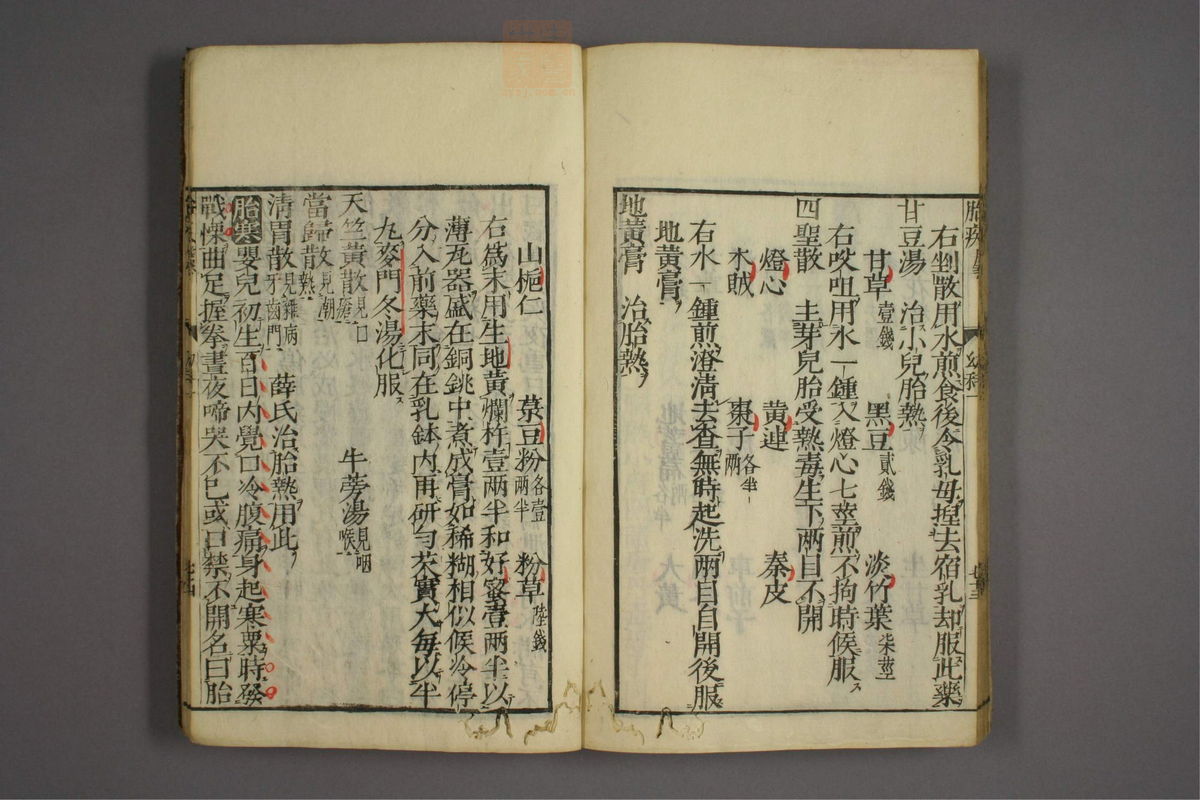 胎疾
右剉散用水煎食後令乳母揑去宿乳却服此藥
甘豆湯 治小兒胎熱
甘草壹錢 黑豆貳錢 淡竹葉柒莖
右㕮咀用水一鍾入燈心七莖煎不拘時候服
四聖散 主芽兒胎受熱毒生下兩目不開
燈心 黄連 秦皮
木賊 棗子各半兩
右水一鍾煎澄淸去查無時起洗兩目自開後服
地黄膏
地黄膏 治胎熱
山梔仁 菉豆粉各壹兩半 粉草陸錢
右爲末用生地黄爛杵壹兩半和好蜜壹兩半以
薄瓦器盛在銅銚中煮成膏如稀糊相似候冷停
分入前藥末同在乳鉢內再研勻芡實大每以半
丸麥門冬湯化服
天竺黄散見口瘡 牛蒡湯見咽喉
當歸散見潮熱
淸胃散見雜病牙齒門 薛氏治胎熱用此
胎寒嬰兒初生百日內覺口冷腹痛身起寒粟時發
戰慄曲足握拳晝夜啼哭不已或口禁不開名曰胎